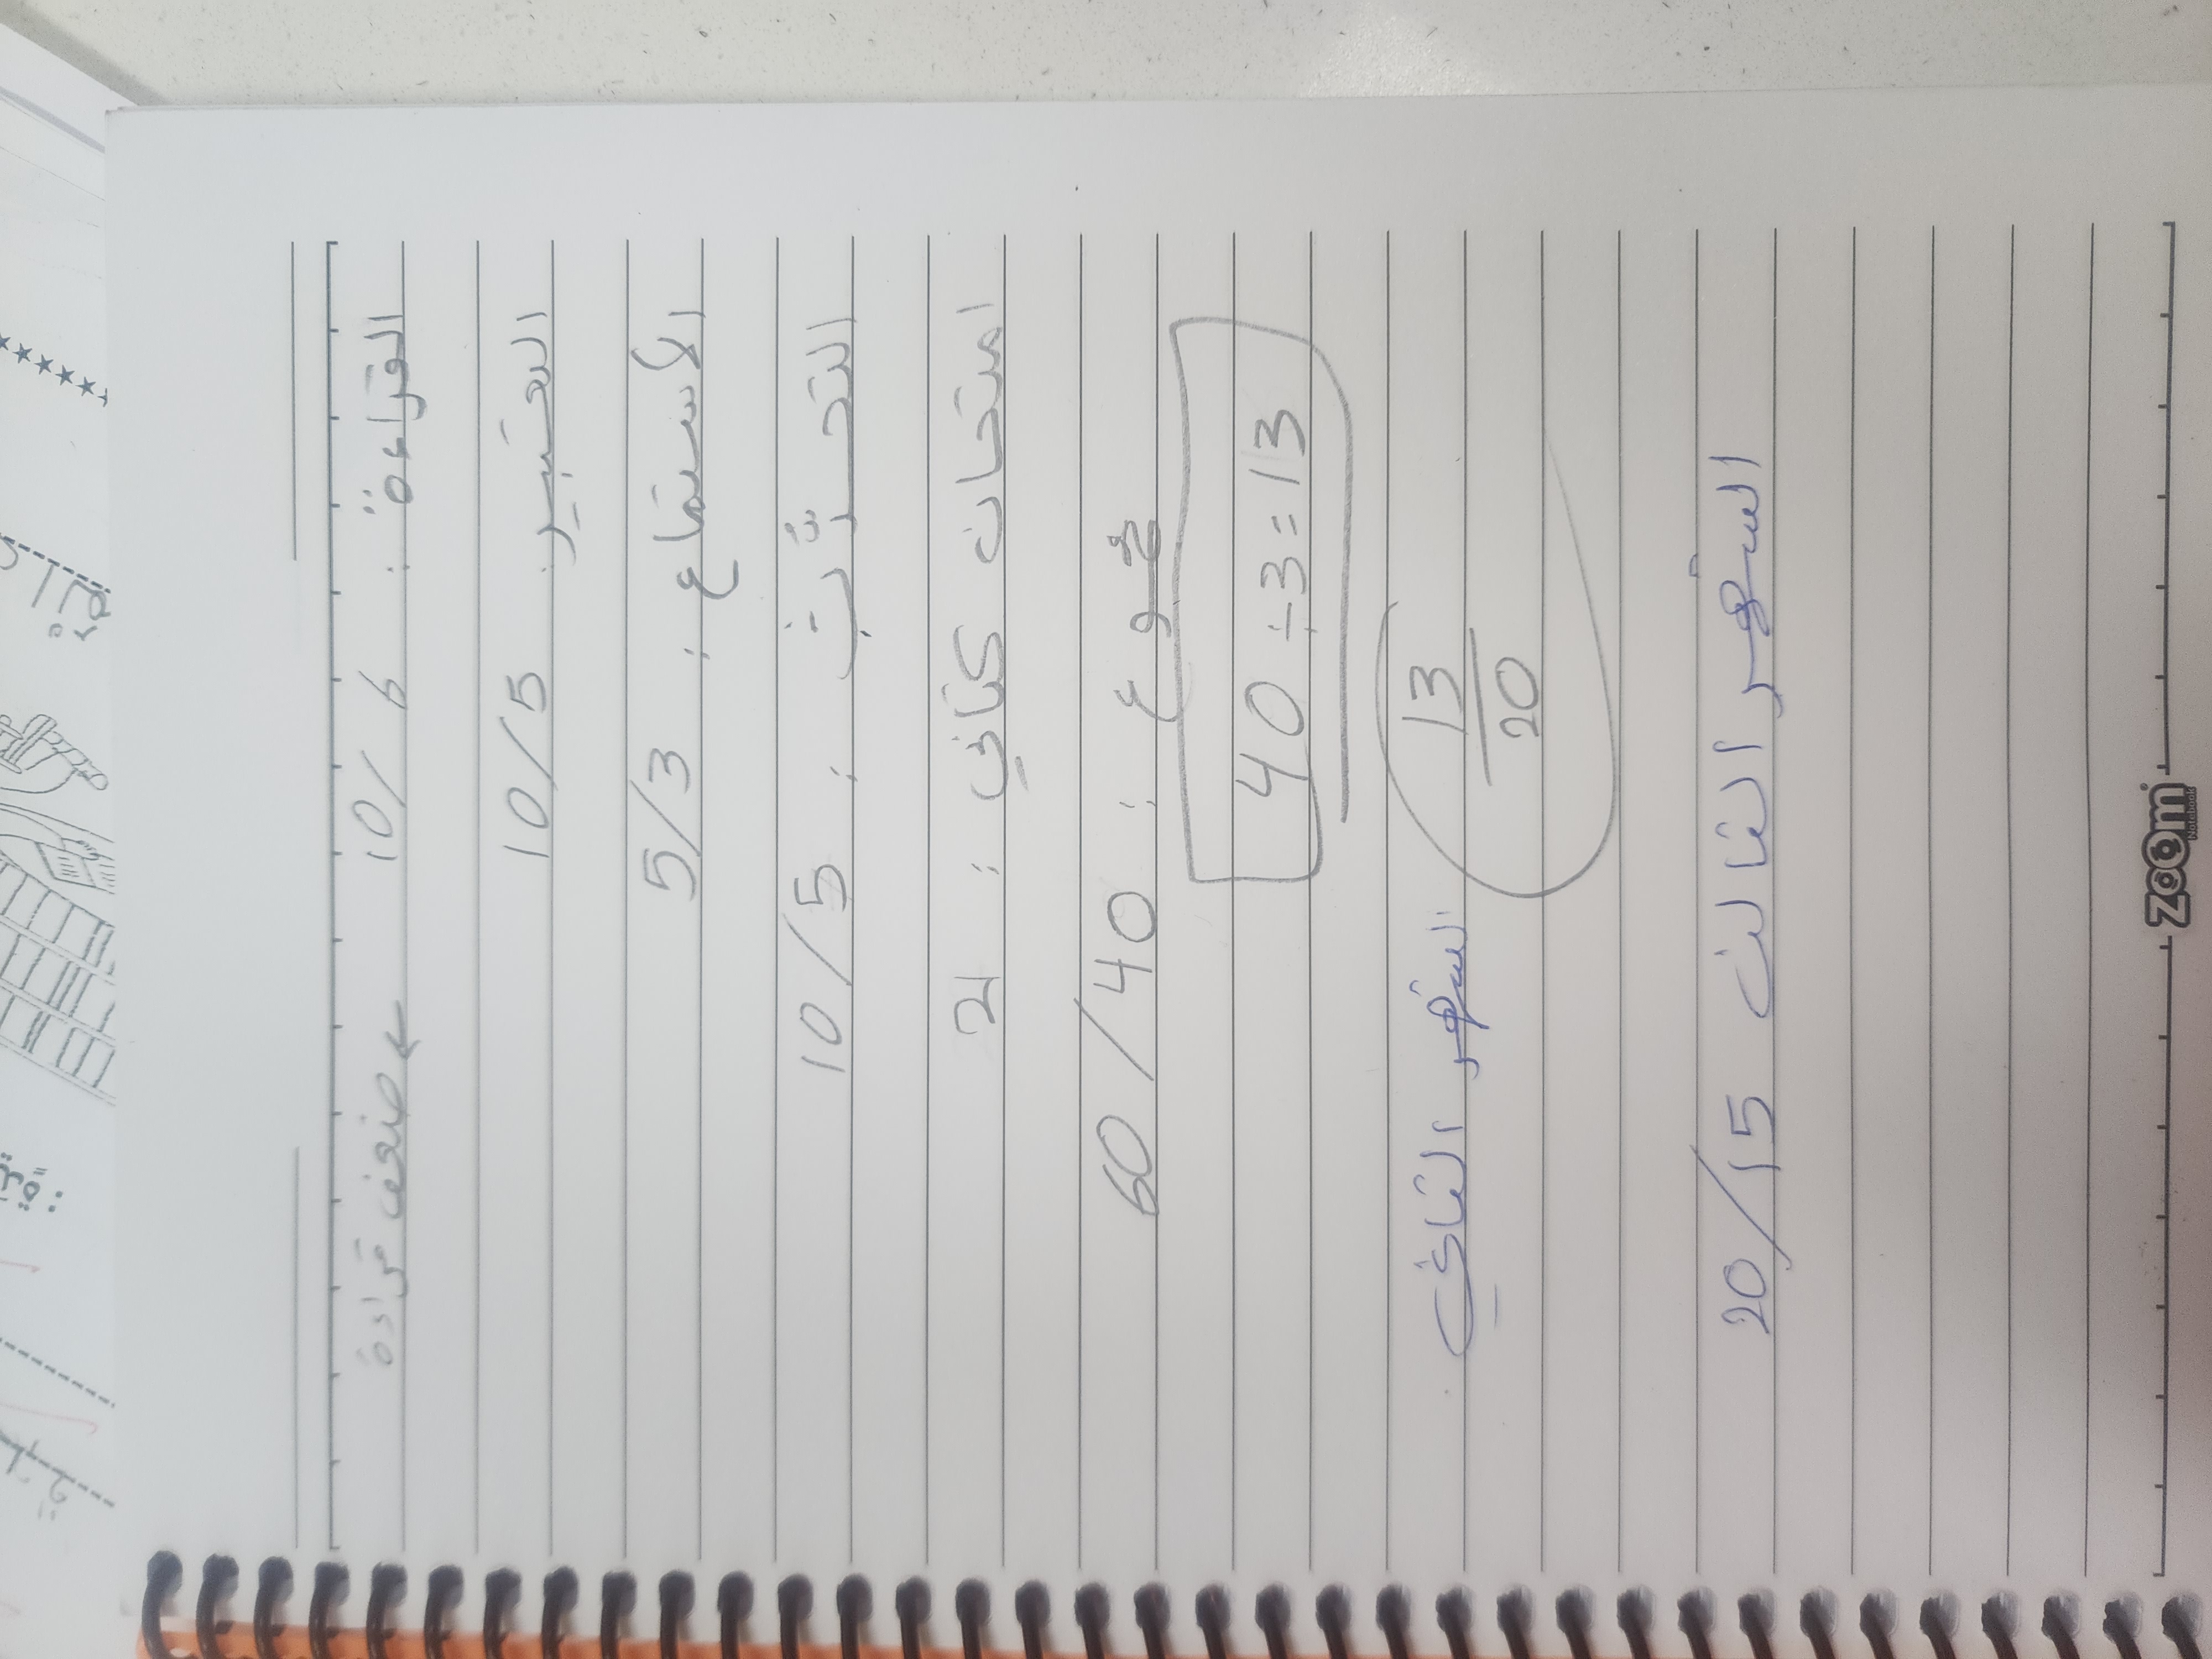 القراءة : 10/6 ← ضعف قراءة
التعبير : 10/5
الأستماع : 5/3
التحدّث : 10/5
امتحان كتابي : 21
مجموع : 60/40
40÷3=13
13
20
الشهر الثاني
الشهر الثالث 20/15
zoom
Notebook